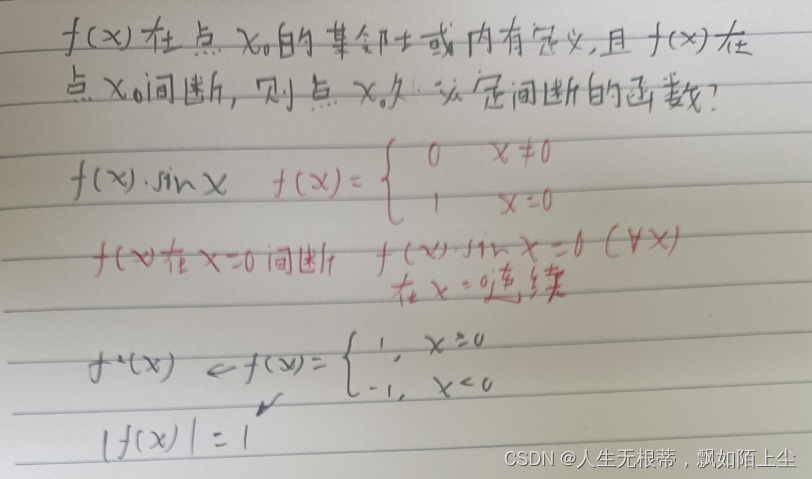 f(x)在点x₀的某邻域内有定义,且f(x)在
点x₀间断,则点x₀处必定间断的函数?
f(x)·sinx f(x)={ 0 x≠0
1 x=0
f(x)在x=0间断 f(x)·sinx=0(∀x)
在x=0连续
f²(x) ← f(x)={ 1, x≥0
-1, x<0
|f(x)|=1
CSDN @人生无根蒂,飘如陌上尘